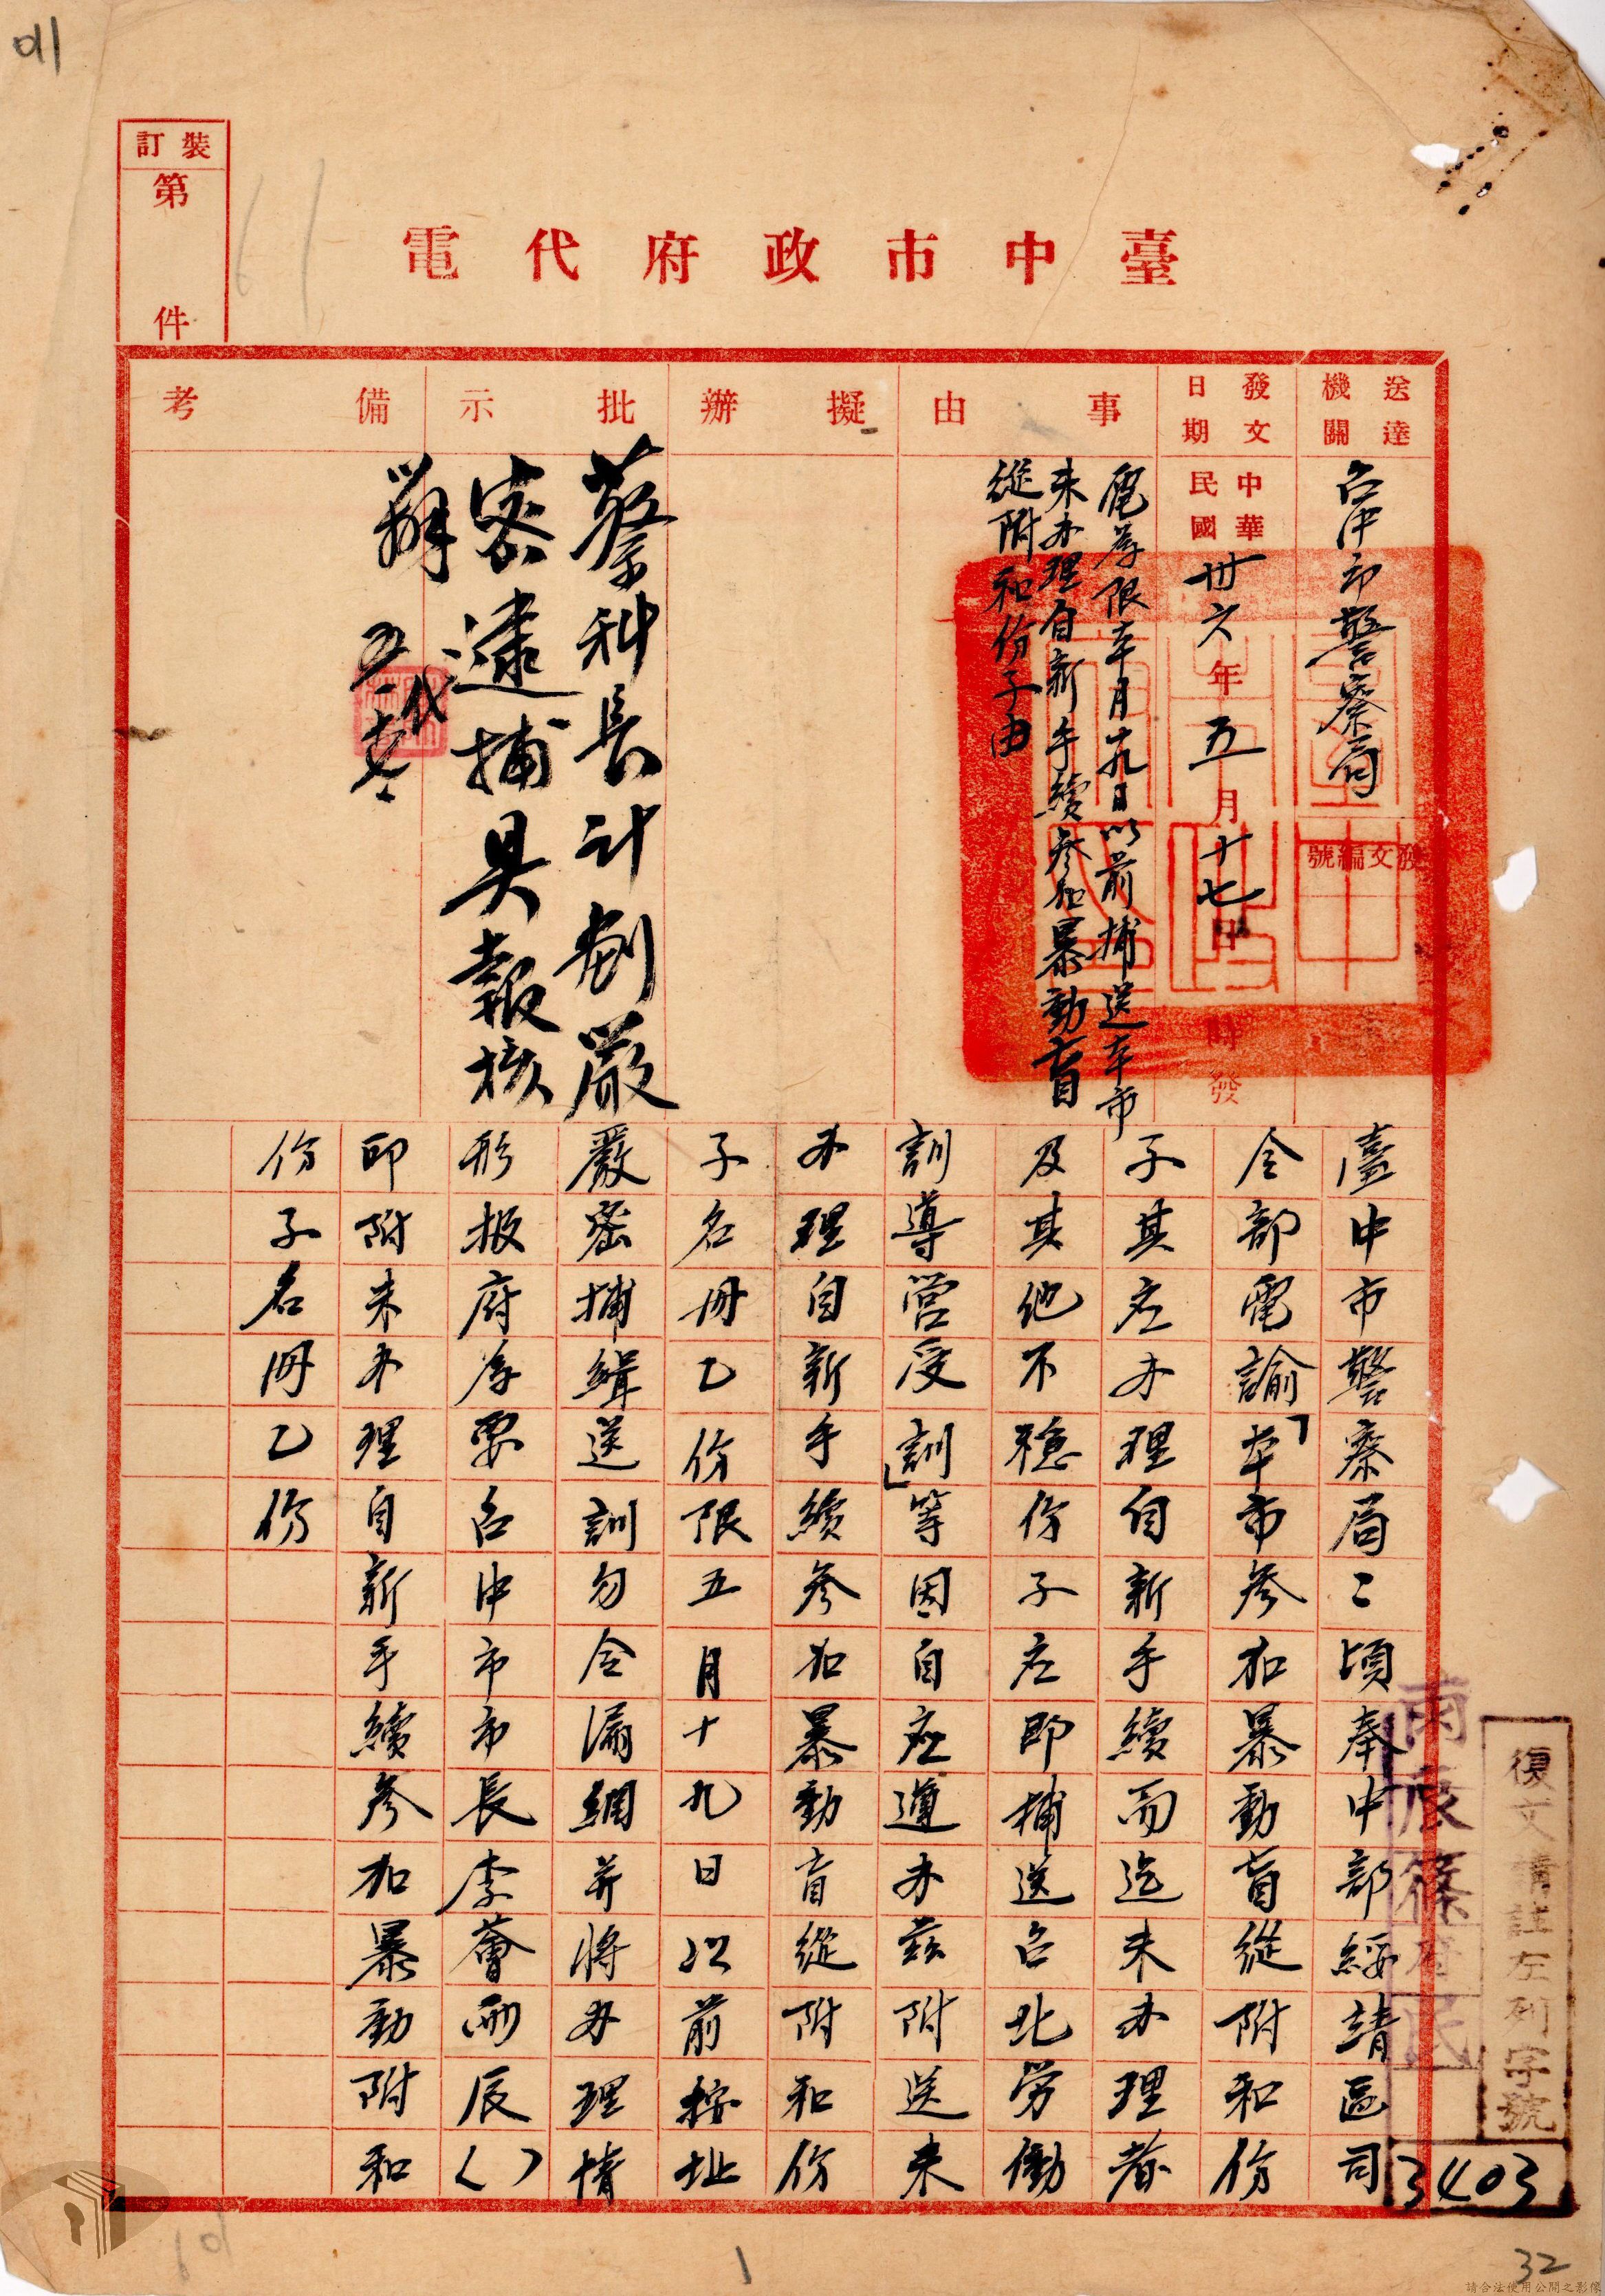 裝訂
第
件
臺中市政府代電
送達機關
台中市警察局
發文日期
中華民國卅六年五月十七日
時發
發文編號
事由
電希限本月十九日以前捕送本市
未办理自新手續參加暴動盲
從附和份子由
擬辦
批示
蔡科長計劃嚴
密逮捕具報核
辦
備考
臺中市警察局二頃奉中部綏靖區司
令部電諭「本市參加暴動盲從附和份
子其应办理自新手續而迄未办理者
及其他不穩份子应即捕送台北劳働
訓導營受訓」等因自应遵办茲附送未
办理自新手續參加暴動盲從附和份
子名册乙份限五月十九日以前按址
嚴密捕緝送訓勿令漏網并將办理情
形报府为要台中市市長李薈丙辰()
印附未办理自新手續參加暴動附和
份子名册乙份
復文請註左列字號
丙辰篠府民
3403
32
請合法使用公開之影像